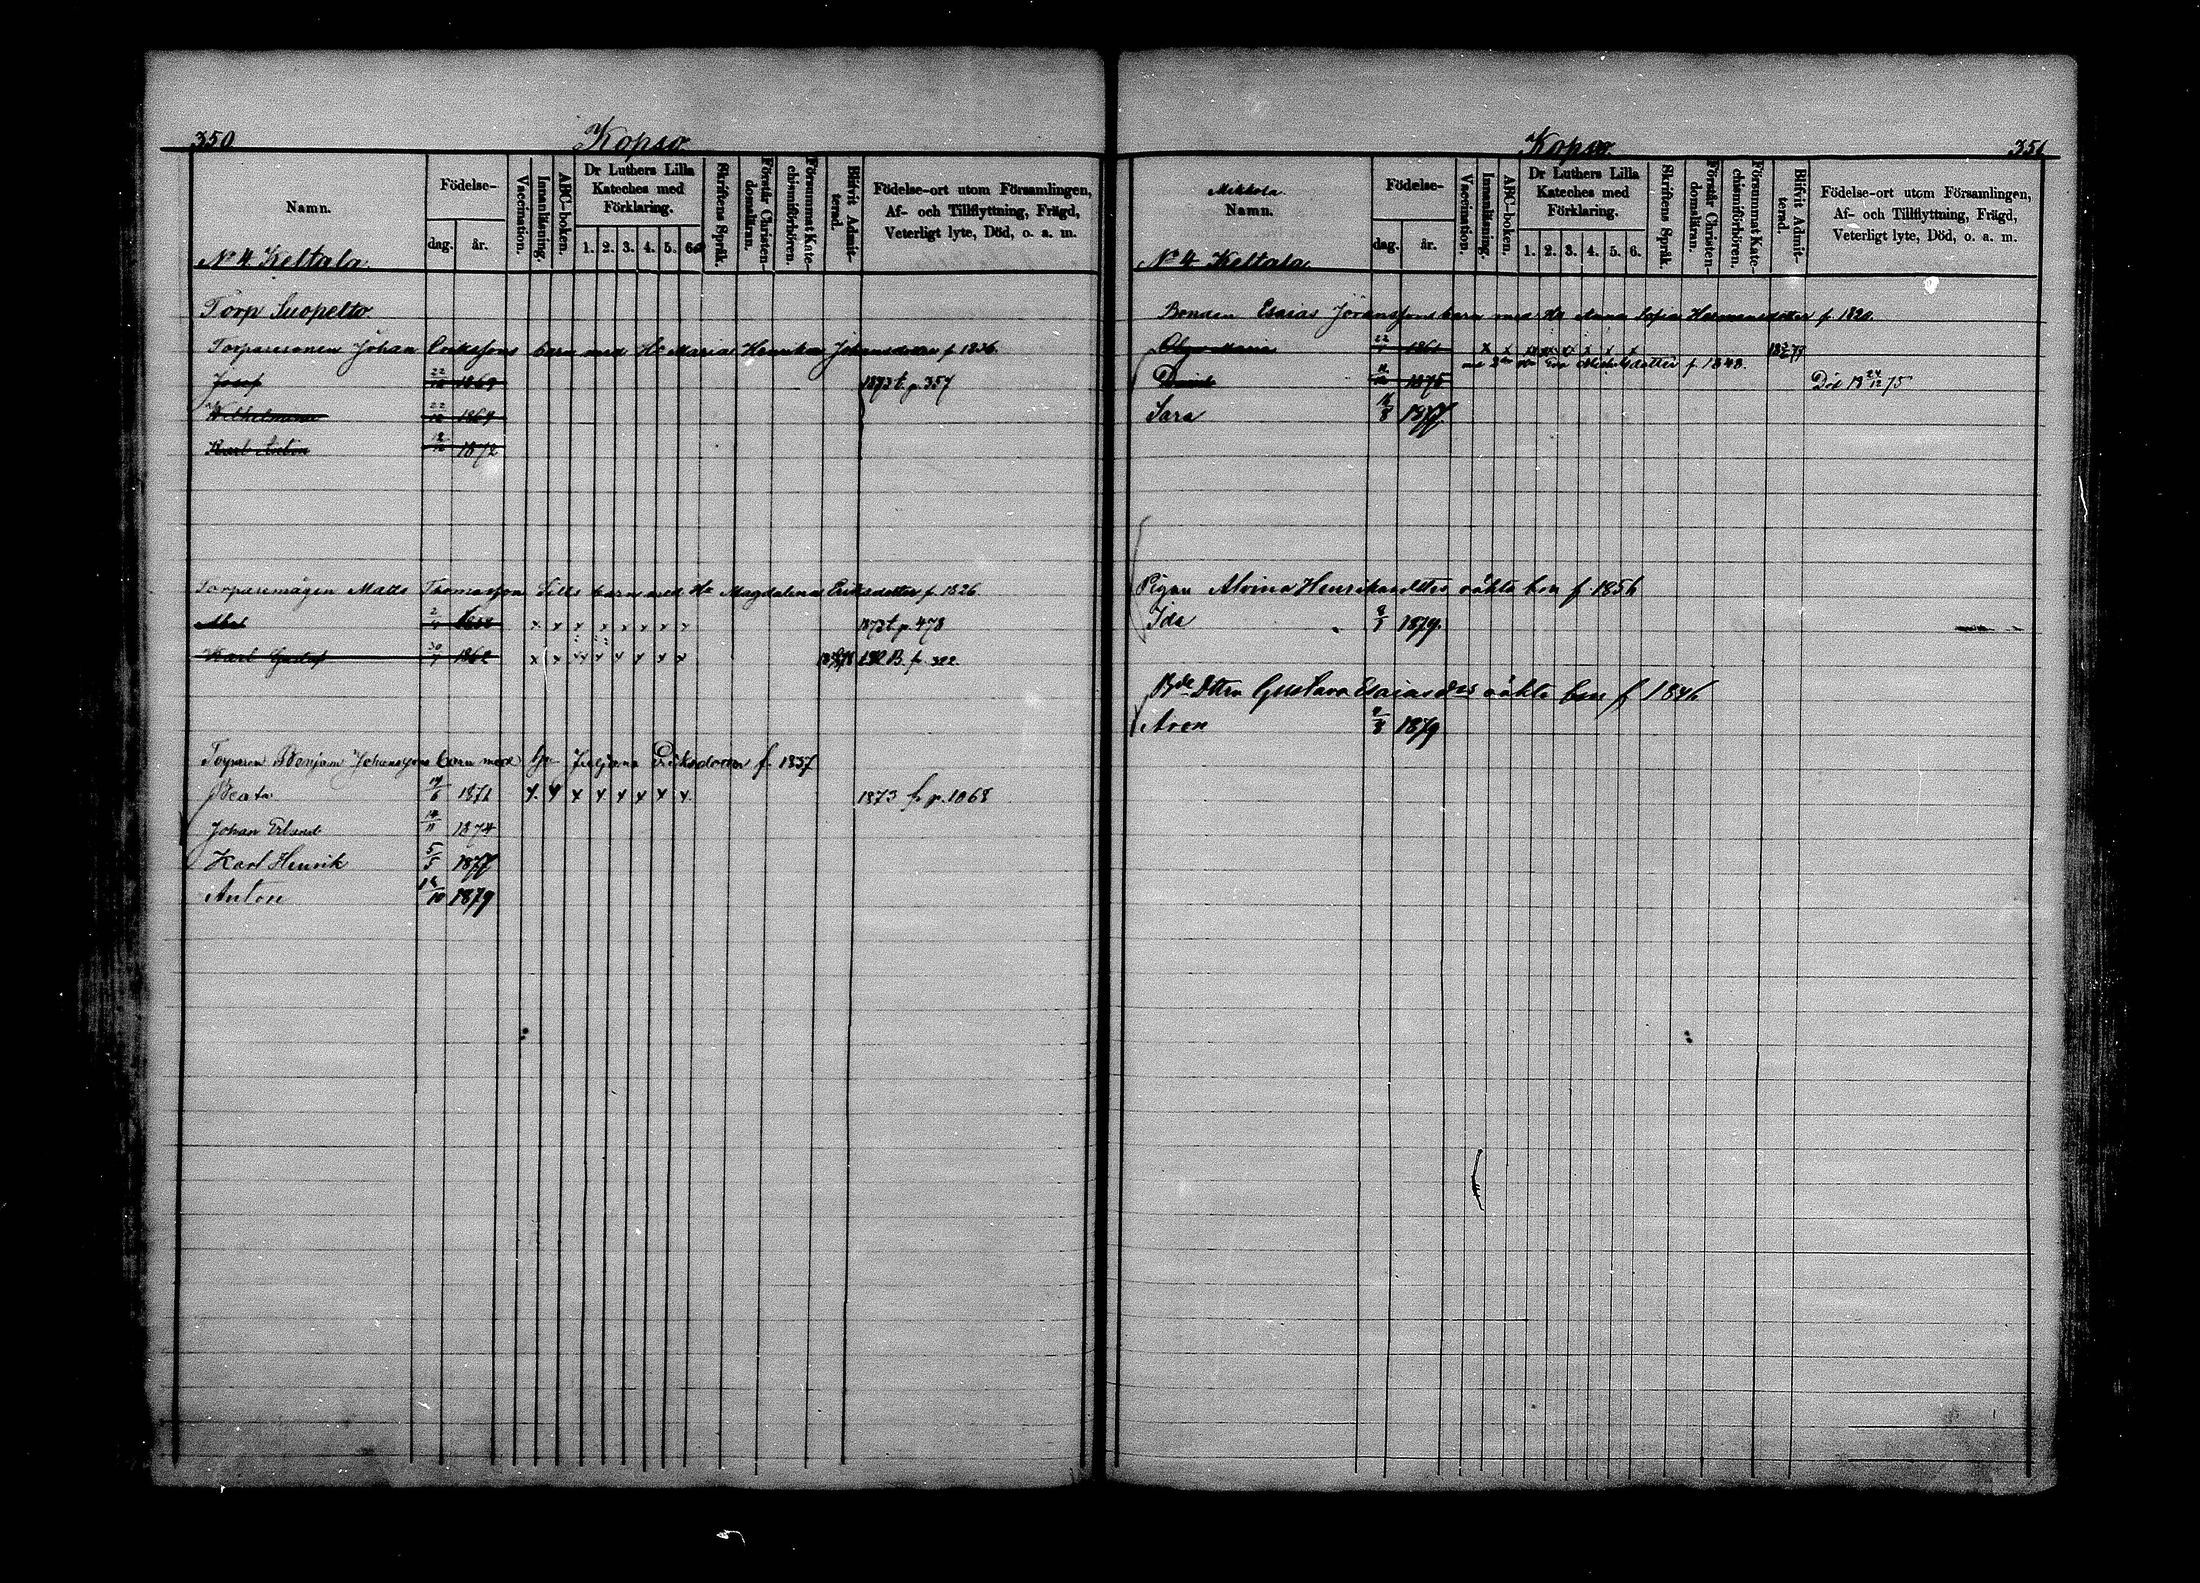 350
Kopso
Namn.
Födelse-
dag. år.
Vaccination.
Innanläsning.
ABC-boken.
Dr Luthers Lilla
Kateches med
Förklaring.
1. 2. 3. 4. 5. 6.
Skriftens Språk.
Förstår Christen-
domsläran.
Försummat Kate-
chismiförhören.
Blifvit Admit-
terad.
Födelse-ort utom Församlingen,
Af- och Tillflyttning, Frägd,
Veterligt lyte, Död, o. a. m.
No 4 Keltala
Torp Suopelto
Torparesonen Johan Erikssons barn med Hu Maria Henrika Johansdotter f 1836
Josef 22/12 1869 1873 t. p. 357
Wilhelmina 22/12 1869
Karl Anton 1872
Torparemågen Matts Thomasson barn med Hu Magdalena Eriksdotter f. 1826
Abel x x x x x x x x 1873 t. p. 478
Karl Gustaf 1862 x x x x x x x x p. 322
Torparen Benjam Johanssons barn med Hu Juljana f. 1837
Beata 1871 x x x x x x x x 1873 fr p. 1068
Johan Erland 14/11 1874
Karl Henrik 5/5 1877
Anton 1879
Kopso
351
Mikkola
Namn.
Födelse-
dag. år.
Vaccination.
Innanläsning.
ABC-boken.
Dr Luthers Lilla
Kateches med
Förklaring.
1. 2. 3. 4. 5. 6.
Skriftens Språk.
Förstår Christen-
domsläran.
Försummat Kate-
chismiförhören.
Blifvit Admit-
terad.
Födelse-ort utom Församlingen,
Af- och Tillflyttning, Frägd,
Veterligt lyte, Död, o. a. m.
No 4 Keltala
Bonden Esaias Jöranssons barn med Hu Anna Sofia Hermansdotter f. 1820
Olga Maria x x x x x x x x
med Michelsdotter f 1848
1875 Död 18 24/12 75
Sara 1877
Pigan Alvina Henriksdotters oäkta barn f 1856
Ida 1879
Gustava Esaiasdrs oäkta barn f 1846
1879